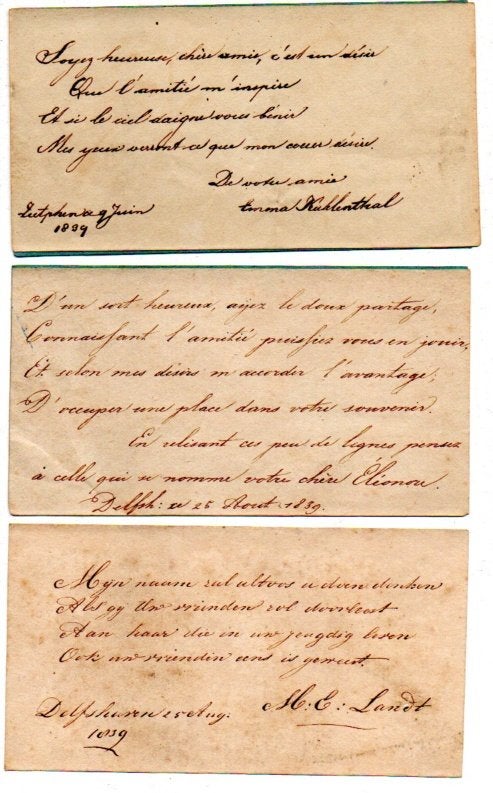 Soyez heureuse, chère amie, c'est un désir
Que l'amitié m'inspire
Et si le ciel daigne vous bénir
Mes yeux verront ce que mon coeur désire.
De votre amie
Zutphen ce 9 Juin
Emma Kuhlenthal
1839
D'un sort heureux, ayez le doux partage,
Connaissant l'amitié puissiez vous en jouir,
Et selon mes désirs m'accorder l'avantage,
D'occuper une place dans votre souvenir.
En relisant ces peu de lignes pensez
à celle qui se nomme votre chère Élionore.
Delfsh: ce 25 Aout 1839.
Mijn naam zal altoos u doen denken
Als gy Uw vrienden rol doorleest
Aan haar die in uw jeugdig leven
Ook uw vriendin eens is geweest.
Delfshaven 25 Aug:
M: E: Landt
1839